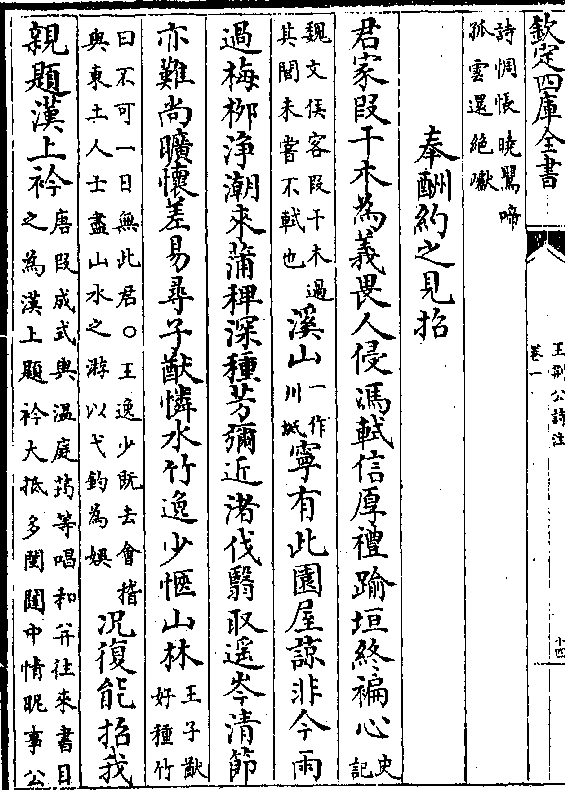 欽定四庫全書
王荆公詩注
卷一
十四
詩惆悵曉鶯啼
孤雲還絶巘
奉酬約之見招
君家段干木為義畏人侵馮軾信厚禮踰垣終褊心史
記
魏文侯客段干木過
其閭未嘗不軾也
溪山
一作
川
寧有此園屋諒非今雨
過梅栁浄潮來蒲稗深種芳彌近渚伐翳取遥岑清節
亦難尚曠懷差易尋子猷憐水竹逸少惬山林
王子猷
好種竹
曰不可一日無此君○王逸少既去會稽
與東土人士盡山水之游以弋釣為娛
況復能招我
親題漢上衿
唐段成式與温庭筠等唱和并往來書目
之為漢上題衿大抵多閨闥中情昵事公